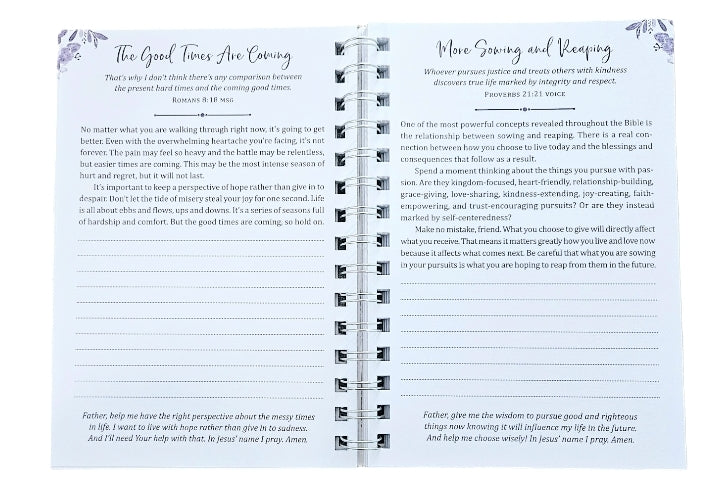 The Good Times Are Coming
That's why I don't think there's any comparison between
the present hard times and the coming good times.
Romans 8:18 MSG
No matter what you are walking through right now, it's going to get
better. Even with the overwhelming heartache you're facing, it's not
forever. The pain may feel so heavy and the battle may be relentless,
but easier times are coming. This may be the most intense season of
hurt and regret, but it will not last.
It's important to keep a perspective of hope rather than give in to
despair. Don't let the tide of misery steal your joy for one second. Life
is all about ebbs and flows, ups and downs. It's a series of seasons full
of hardship and comfort. But the good times are coming, so hold on.
Father, help me have the right perspective about the messy times
in life. I want to live with hope rather than give in to sadness.
And I'll need Your help with that. In Jesus' name I pray. Amen.
More Sowing and Reaping
Whoever pursues justice and treats others with kindness
discovers true life marked by integrity and respect.
Proverbs 21:21 VOICE
One of the most powerful concepts revealed throughout the Bible is
the relationship between sowing and reaping. There is a real con-
nection between how you choose to live today and the blessings and
consequences that follow as a result.
Spend a moment thinking about the things you pursue with pas-
sion. Are they kingdom-focused, heart-friendly, relationship-building,
grace-giving, love-sharing, kindness-extending, joy-creating, faith-
empowering, and trust-encouraging pursuits? Or are they instead
marked by self-centeredness?
Make no mistake, friend. What you choose to give will directly affect
what you receive. That means it matters greatly how you live and love now
because it affects what comes next. Be careful that what you are sowing
in your pursuits is what you are hoping to reap from them in the future.
Father, give me the wisdom to pursue good and righteous
things now knowing it will influence my life in the future.
And help me choose wisely! In Jesus' name I pray. Amen.